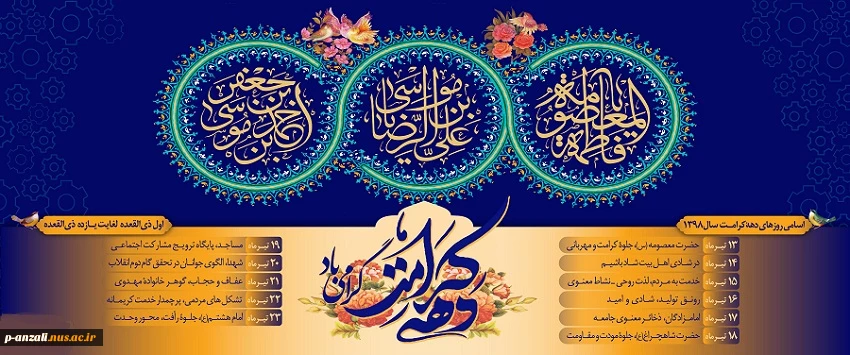 یا فاطمة المعصومة
علی بن موسی الرضا
احمد بن موسی بن جعفر
دهه کرامت
گرامی باد
اسامی روزهای دهه کرامت سال ۱۳۹۸
۱۳ تیرماه حضرت معصومه (س)، جلوۀ کرامت و مهربانی
۱۴ تیرماه در شادی اهل بیت شاد باشیم
۱۵ تیرماه خدمت به مردم، لذت روحی - نشاط معنوی
۱۶ تیرماه رونق تولید، شادی و امید
۱۷ تیرماه امامزادگان، ذخائر معنوی جامعه
۱۸ تیرماه حضرت شاهچراغ (ع)، جلوۀ مودت و مقاومت
اول ذی‌القعده لغایت یازده ذی‌القعده
۱۹ تیرماه مساجد، پایگاه ترویج مشارکت اجتماعی
۲۰ تیرماه شهدا، الگوی جوانان در تحقق گام دوم انقلاب
۲۱ تیرماه عفاف و حجاب، گوهر خانوادۀ مهدوی
۲۲ تیرماه تشکل‌های مردمی، پرچمدار خدمت کریمانه
۲۳ تیرماه امام هشتم (ع)، جلوۀ رأفت، محور وحدت
p-anzali.nus.ac.ir